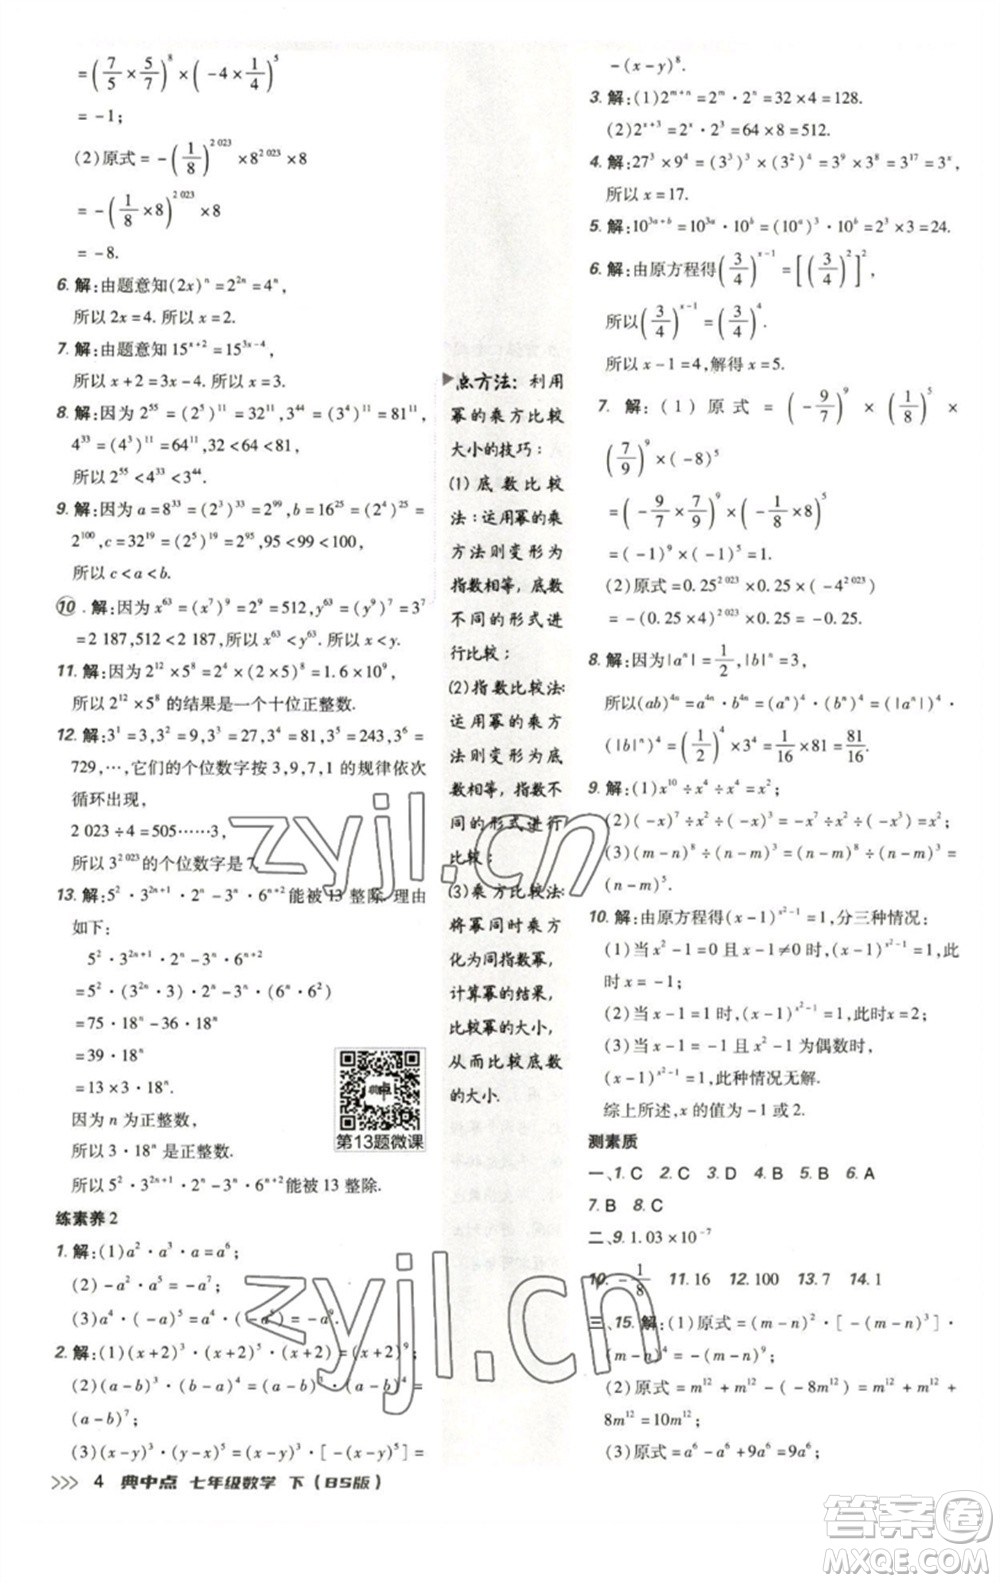 =(7/5×5/7)^8×(-4×1/4)^5
=-1;
(2)原式=-(1/8)^{2 023}×8^{2 023}×8
=-(1/8×8)^{2 023}×8
=-8.
6. 解:由题意知(2x)^n=2^{2n}=4^n,
所以 2x=4. 所以 x=2.
7. 解:由题意知 15^{x+2}=15^{3x-4},
所以 x+2=3x-4. 所以 x=3.
8. 解:因为 2^{55}=(2^5)^{11}=32^{11},3^{44}=(3^4)^{11}=81^{11},
4^{33}=(4^3)^{11}=64^{11},32<64<81,
所以 2^{55}<4^{33}<3^{44}.
9. 解:因为 a=8^{33}=(2^3)^{33}=2^{99},b=16^{25}=(2^4)^{25}=
2^{100},c=32^{19}=(2^5)^{19}=2^{95},95<99<100,
所以 c<a<b.
10. 解:因为 x^{63}=(x^7)^9=2^9=512,y^{63}=(y^9)^7=3^7
=2 187,512<2 187,所以 x^{63}<y^{63}.所以 x<y.
11. 解:因为 2^{12}×5^8=2^4×(2×5)^8=1.6×10^9,
所以 2^{12}×5^8 的结果是一个十位正整数.
12. 解:3^1=3,3^2=9,3^3=27,3^4=81,3^5=243,3^6=
729,…,它们的个位数字按 3,9,7,1 的规律依次
循环出现,
2 023÷4=505……3,
所以 3^{2 023}的个位数字是 7.
13. 解:5^2·3^{2n+1}·2^n-3^n·6^{n+2}能被 13 整除. 理由
如下:
5^2·3^{2n+1}·2^n-3^n·6^{n+2}
=5^2·(3^{2n}·3)·2^n-3^n·(6^n·6^2)
=75·18^n-36·18^n
=39·18^n
=13×3·18^n.
因为 n 为正整数,
所以 3·18^n 是正整数.
所以 5^2·3^{2n+1}·2^n-3^n·6^{n+2}能被 13 整除.
第13题微课
练素养 2
1. 解:(1)a^2·a^3·a=a^6;
(2)-a^2·a^5=-a^7;
(3)a^4·(-a)^5=a^4·(-a^5)=-a^9.
2. 解:(1)(x+2)^3·(x+2)^5·(x+2)=(x+2)^9;
(2)(a-b)^3·(b-a)^4=(a-b)^3·(a-b)^4=
(a-b)^7;
(3)(x-y)^3·(y-x)^5=(x-y)^3·[-(x-y)^5]=
>>> 4 典中点 七年级数学 下(BS版)
点方法:利用
幂的乘方比较
大小的技巧:
(1)底数比较
法:运用幂的乘
方法则变形为
指数相等,底数
不同的形式进
行比较;
(2)指数比较法:
运用幂的乘方
法则变形为底
数相等,指数不
同的形式进行
比较;
(3)乘方比较法:
将幂同时乘方
化为同指数幂,
计算幂的结果,
比较幂的大小,
从而比较底数
的大小.
-(x-y)^8.
3. 解:(1)2^{m+n}=2^m·2^n=32×4=128.
(2)2^{x+3}=2^x·2^3=64×8=512.
4. 解:27^3×9^4=(3^3)^3×(3^2)^4=3^9×3^8=3^{17}=3^x,
所以 x=17.
5. 解:10^{3a+b}=10^{3a}·10^b=(10^a)^3·10^b=2^3×3=24.
6. 解:由原方程得(3/4)^{x-1}=[(3/4)^2]^2,
所以(3/4)^{x-1}=(3/4)^4.
所以 x-1=4,解得 x=5.
7. 解:(1)原式=(-9/7)^9×(1/8)^5×
(7/9)^9×(-8)^5
=(-9/7×7/9)^9×(-1/8×8)^5
=(-1)^9×(-1)^5=1.
(2)原式=0.25^{2 023}×0.25×(-4^{2 023})
=-(0.25×4)^{2 023}×0.25=-0.25.
8. 解:因为|a^n|=1/2,|b|^n=3,
所以(ab)^{4n}=a^{4n}·b^{4n}=(a^n)^4·(b^n)^4=(|a^n|)^4·
(|b|^n)^4=(1/2)^4×3^4=1/16×81=81/16.
9. 解:(1)x^{10}÷x^4÷x^4=x^2;
(2)(-x)^7÷x^2÷(-x)^3=-x^7÷x^2÷(-x^3)=x^2;
(3)(m-n)^8÷(n-m)^3=(n-m)^8÷(n-m)^3=
(n-m)^5.
10. 解:由原方程得(x-1)^{x^2-1}=1,分三种情况:
(1)当 x^2-1=0 且 x-1≠0 时,(x-1)^{x^2-1}=1,此
时 x=-1;
(2)当 x-1=1 时,(x-1)^{x^2-1}=1,此时 x=2;
(3)当 x-1=-1 且 x^2-1 为偶数时,
(x-1)^{x^2-1}=1,此种情况无解.
综上所述,x 的值为-1 或 2.
测素质
一、1. C 2. C 3. D 4. B 5. B 6. A
7. B 8. C
二、9. 1.03×10^{-7}
10. -1/8 11. 16 12. 100 13. 7 14. 1
三、15. 解:(1)原式=(m-n)^2·[-(m-n)^3]·
(m-n)^4=-(m-n)^9.
(2)原式=m^{12}+m^{12}-(-8m^{12})=m^{12}+m^{12}+
8m^{12}=10m^{12}.
(3)原式=a^6-a^6+9a^6=9a^6.
zyjl.cn
zyjl.cn
答案圈
MXQE.COM